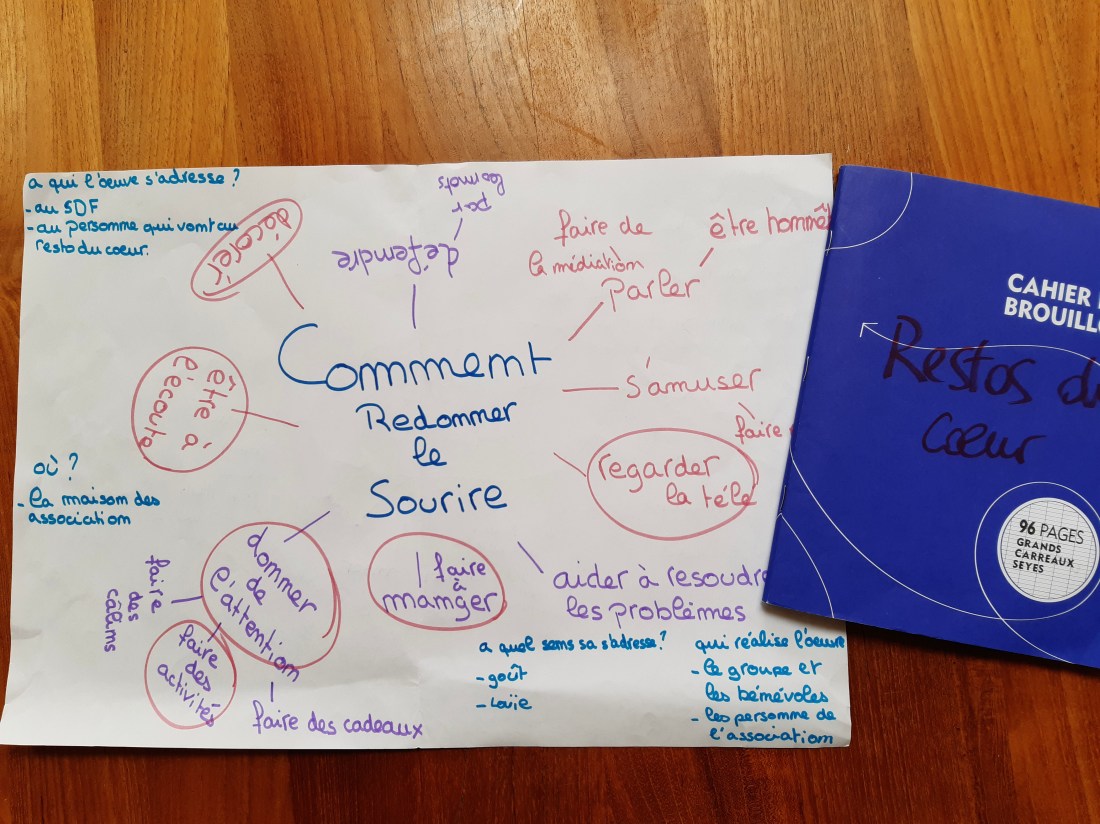 a qui l'œuvre s'adresse ?
- au SDF
- au personne qui vont au
resto du cœur.
décorer
défendre
par
les mots
faire de
la médiation
parler
être honnêt
Comment
Redonner
le
Sourire
s'amuser
faire
regarder
la télé
être à
l'écoute
où ?
- la maison des
association
donner
de
l'attention
faire
des
câlins
faire
des
activités
faire des cadeaux
faire
à
manger
aider à resoudre
les problèmes
a quel sens sa s'adresse ?
- goût
qui réalise l'œuvre
- le groupe et
les bénévoles
- les personne de
l'association
CAHIER
BROUILL
Restos du
cœur
96 PAGES
GRANDS
CARREAUX
SEYES